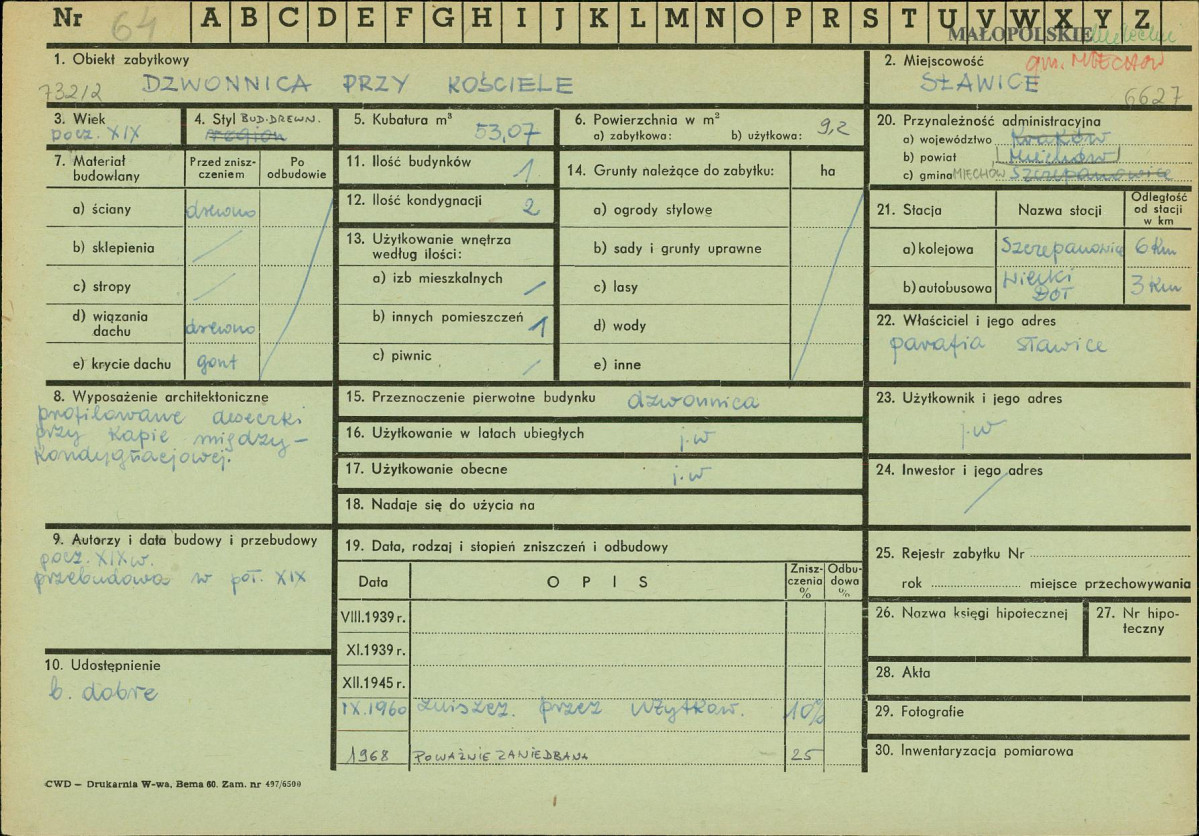 Nr 64 A B C D E F G H I J K L M N O P R S T U V W X Y Z
MAŁOPOLSKIE
1. Obiekt zabytkowy
732/2 DZWONNICA PRZY KOŚCIELE
2. Miejscowość gm. MIECHÓW
SŁAWICE
6627
3. Wiek
pocz. XIX
4. Styl BUD. DREWN.
region
5. Kubatura m³
53,07
6. Powierzchnia w m²
a) zabytkowa: b) użytkowa: 9,2
20. Przynależność administracyjna
a) województwo Kraków
b) powiat Miechów
c) gmina MIECHÓW Szczepanowice
7. Materiał budowlany
Przed znisz-
czeniem
Po
odbudowie
a) ściany drewno
b) sklepienia
c) stropy
d) wiązania
dachu drewno
e) krycie dachu gont
11. Ilość budynków 1
12. Ilość kondygnacji 2
13. Użytkowanie wnętrza
według ilości:
a) izb mieszkalnych
b) innych pomieszczeń 1
c) piwnic
14. Grunty należące do zabytku: ha
a) ogrody stylowe
b) sady i grunty uprawne
c) lasy
d) wody
e) inne
21. Stacja Nazwa stacji
Odległość
od stacji
w km
a) kolejowa Szczepanowice 6 km
b) autobusowa Wielki
DÓŁ 3 km
22. Właściciel i jego adres
parafia Sławice
8. Wyposażenie architektoniczne
profilowane deseczki
przy kapie między-
kondygnacjowej.
15. Przeznaczenie pierwotne budynku dzwonnica
16. Użytkowanie w latach ubiegłych j.w
17. Użytkowanie obecne j.w
18. Nadaje się do użycia na
23. Użytkownik i jego adres
j.w
24. Inwestor i jego adres
9. Autorzy i data budowy i przebudowy
pocz. XIX w.
przebudowa w poł. XIX
19. Data, rodzaj i stopień zniszczeń i odbudowy
Data OPIS
Znisz-
czenia
%
Odbu-
dowa
%
VIII.1939 r.
XI.1939 r.
XII.1945 r.
IX.1960 zniszcz. przez użytkow. 10%
1968 POWAŻNIE ZANIEDBANA 25
25. Rejestr zabytku Nr
rok miejsce przechowywania
26. Nazwa księgi hipotecznej
27. Nr hipo-
teczny
10. Udostępnienie
b. dobre
28. Akta
29. Fotografie
30. Inwentaryzacja pomiarowa
CWD — Drukarnia W-wa, Bema 60. Zam. nr 497/6500